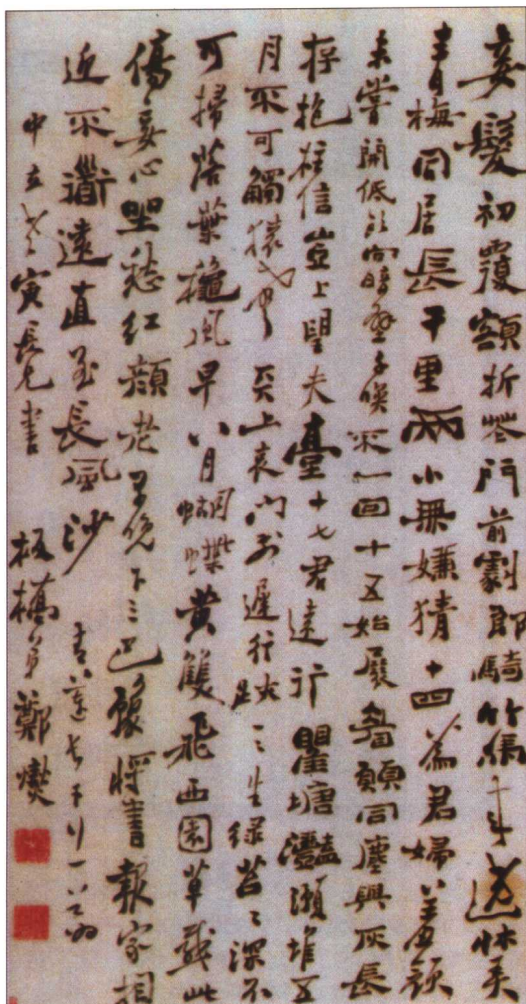 妾髮初覆額折花門前劇郎騎竹馬来遶牀弄
青梅同居長干里兩小無嫌猜十四為君婦羞顔
未嘗開低頭向暗壁千喚不一回十五始展眉願同塵與灰長
存抱柱信豈上望夫臺十七君遠行瞿塘灩澦堆五
月不可觸猿聲天上哀門前遲行跡一一生緑苔苔深不
可掃落葉秌風早八月蝴蝶黄雙飛西園草感此
傷妾心坐愁紅顔老早晚下三巴豫將書報家相
迎不道遠直至長風沙 青蓮長干行一首為
中立老寅長兄書 板橋弟鄭燮